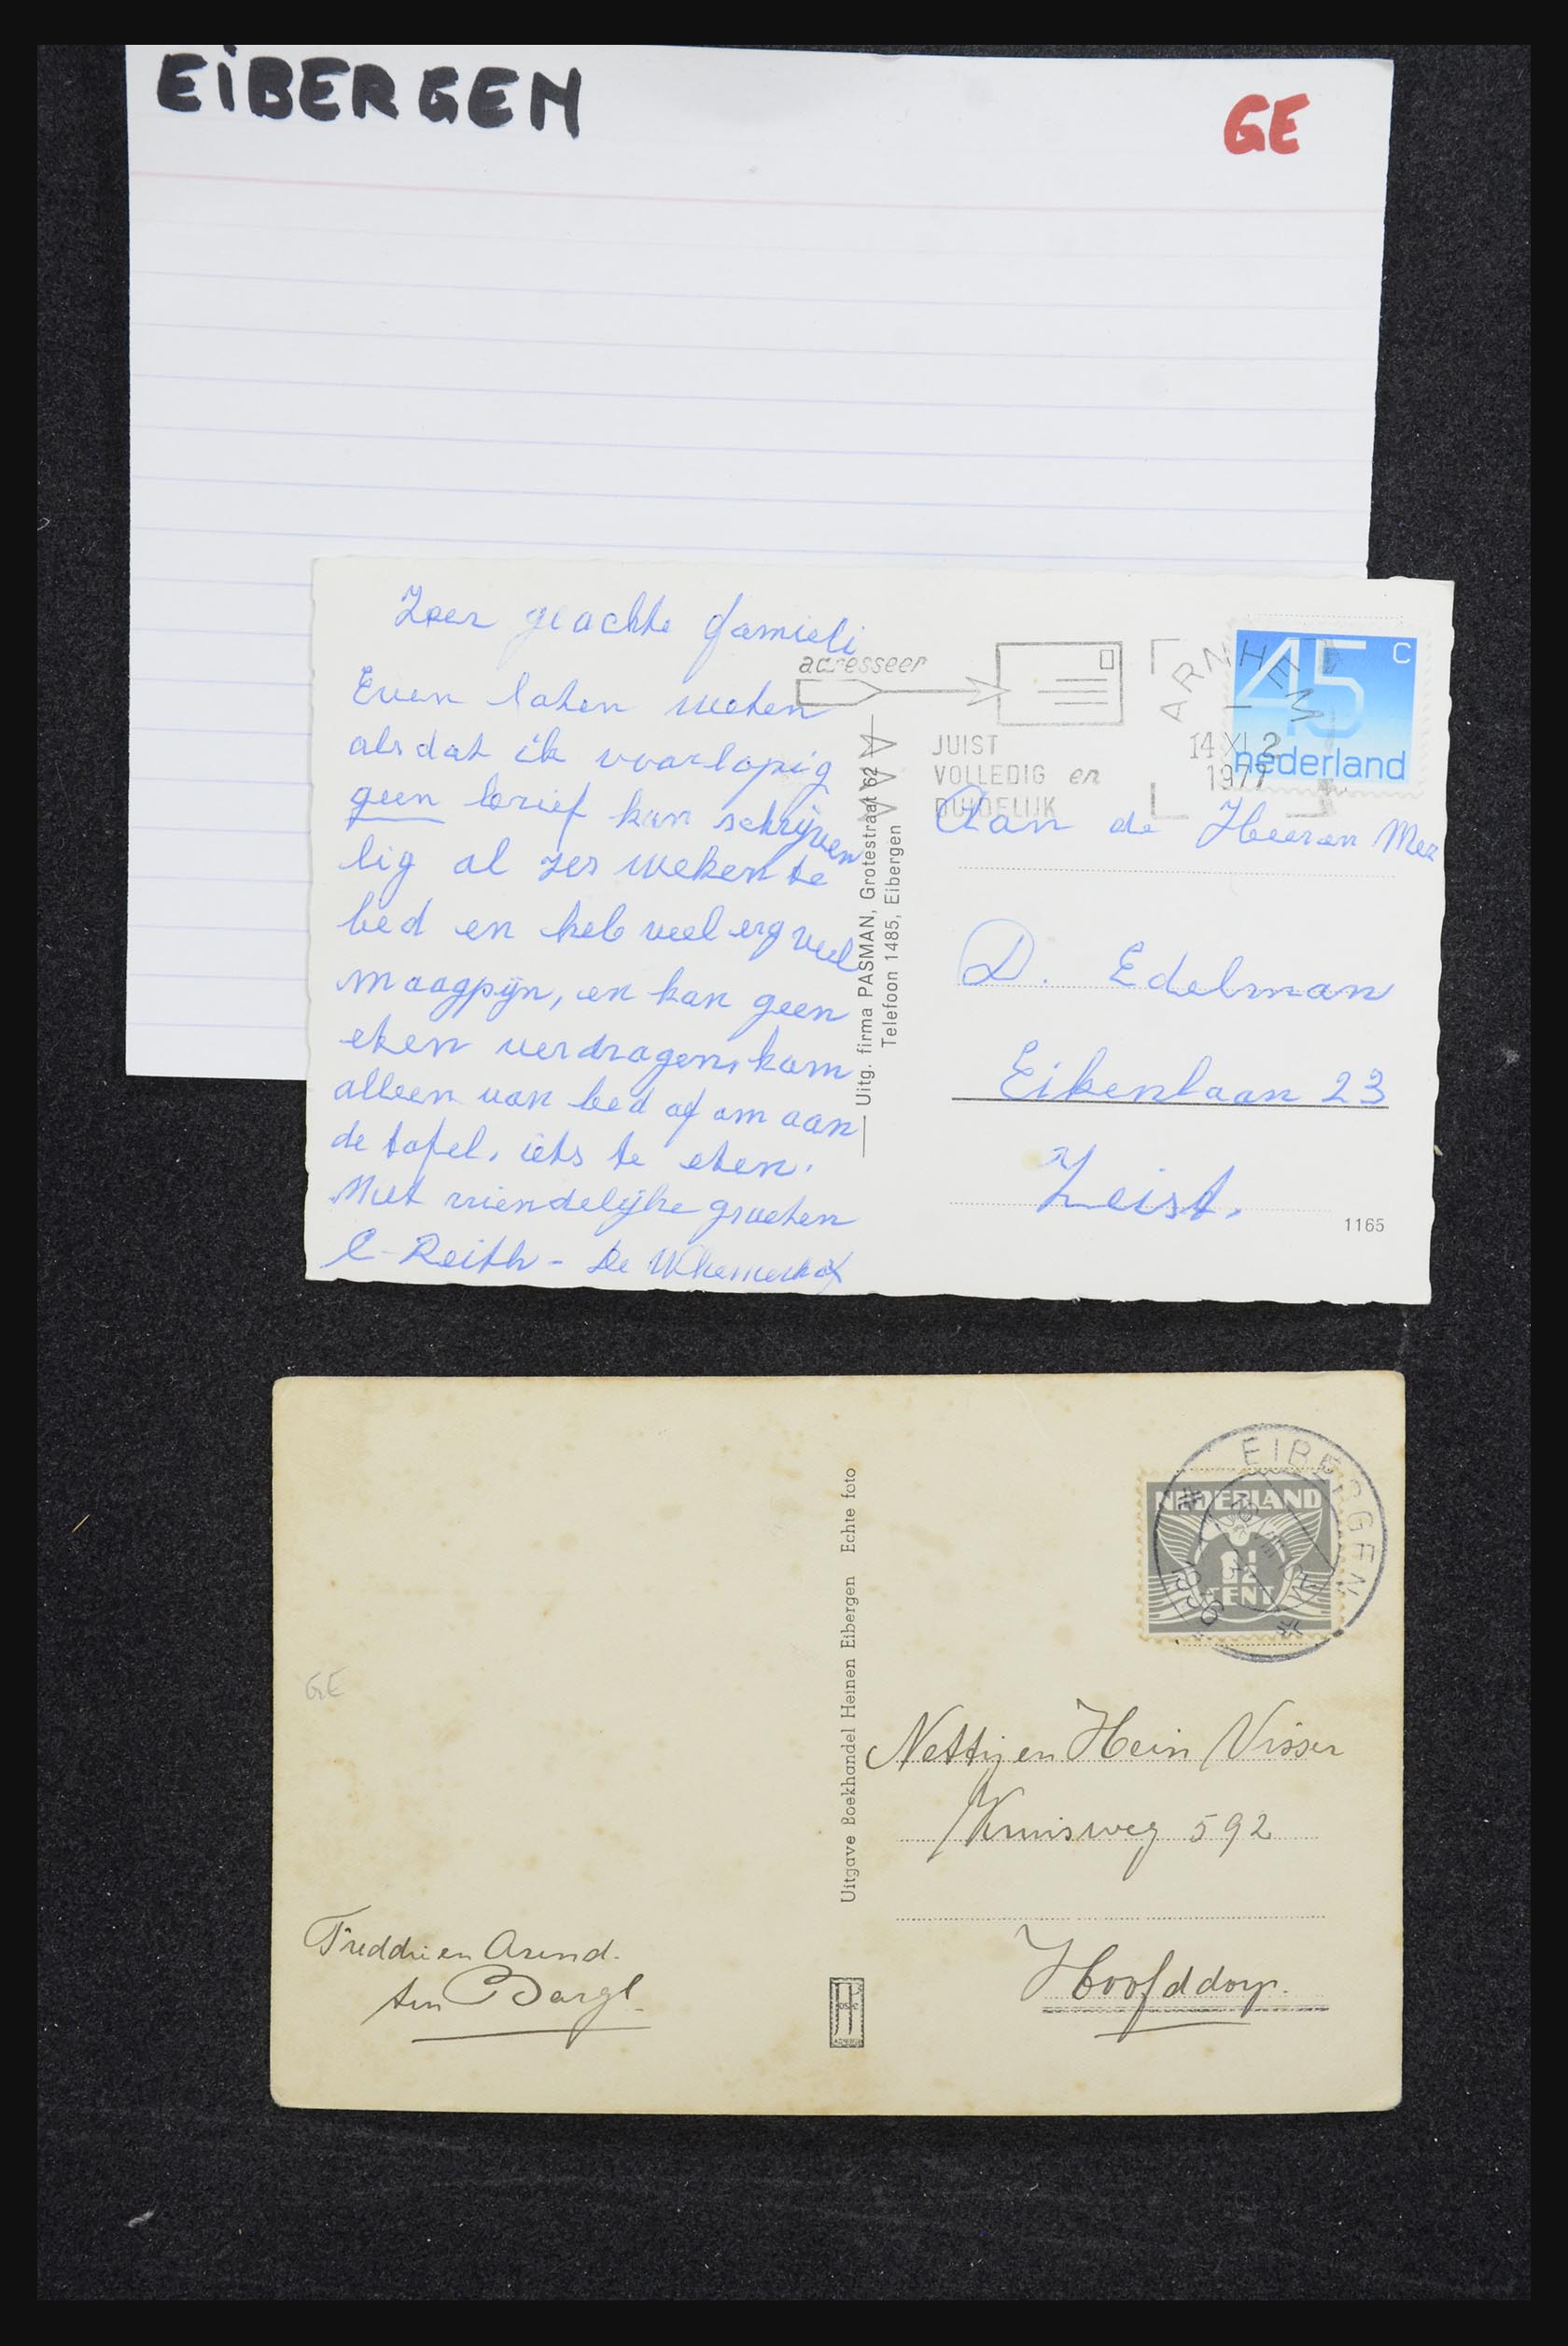 EiBERGEN
GE
Zeer geachte famieli
Even laten weten
als dat ik voorlopig
geen brief kan schrijven
lig al zes weken te
bed en heb veel erg veel
maagpijn, en kan geen
eten verdragen, kom
alleen van bed af om aan
de tafel, iets te eten.
Met vriendelijke groeten
C. Reith - de
adresseer
JUIST
VOLLEDIG en
DUIDELIJK
ARNHEM
14 XI 2
1977
45 c
nederland
Uitg. firma PASMAN, Grotestraat 62
Telefoon 1485, Eibergen
Aan de Heer en Mez
D. Edelman
Eikenlaan 23
Zeist.
1165
EIBERGEN
NEDERLAND
CENT
Uitgave Boekhandel Heinen Eibergen Echte foto
GE
Netty en Hein Visser
Kruisweg 592
Hoofddorp.
Freddie en Arend.
ten Bargl.